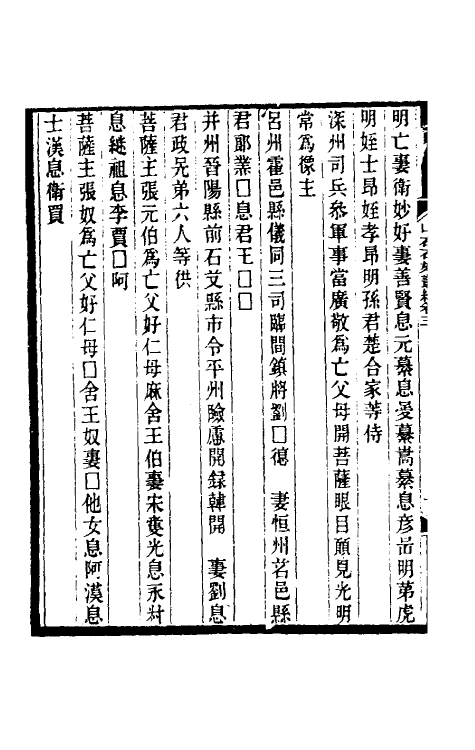 明亡妻衛妙好妻善賢息元纂息愛纂嵩纂息彥嵒明弟虎
明姪士昂姪孝昂明孫君楚合家等侍
深州司兵叅軍事當廣敬為亡父母開菩薩眼目願見光明
常為像主
呂州霍邑縣儀同三司臨間鎮將劉□德　妻恒州茗邑縣
君郿業□息君王□□
并州晉陽縣前石艾縣市令平州險慮開録韓開　妻劉息
君政兄弟六人等供
菩薩主張元伯為亡父好仁母麻舍王伯妻宋雙光息永村
息縫祖息李賈□阿
菩薩主張奴為亡父好仁母□舍王奴妻□他女息阿漢息
士漢息衛買